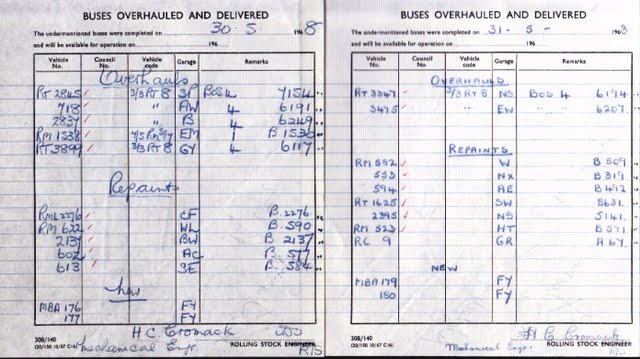 BUSES OVERHAULED AND DELIVERED
The undermentioned buses were completed on 30. 5. 1968
and will be available for operation on 196
Vehicle No. Council No. Vehicle code Garage Remarks
Overhauls
RT 2845 3/3 RT 8 SP BoS 4 7154
718 " AW 4 6191
2837 " B 4 6249
RM 1538 EM 1 B 1536
RT 3899 3/3 RT 8 GY 4 6117
Repaints
RML 2276 CF B. 2276
RM 622 WL B. 590
2137 BW B 2137
602 AC B. 577
613 SE B. 584
New
MBA 176 FY
177 FY
H C Cromack
308/140
(20/150 10/67 C16) ROLLING STOCK ENGINEER
Mechanical Engr.
BUSES OVERHAULED AND DELIVERED
The undermentioned buses were completed on 31 - 5 - 1968
and will be available for operation on 196
Vehicle No. Council No. Vehicle code Garage Remarks
OVERHAULS
RT 3347 3/3 RT 8 NS BoS 4 6194
3475 " EW " " 6207
REPAINTS
RM 552 W B 509
553 NX B 319
594 AE B 492
RT 1625 SW 5631
2395 NS 5141
RM 523 HT B 571
RC 9 GR A 67
NEW
MBA 179 FY
180 FY
H C Cromack
308/140
(20/150 10/67 C16) ROLLING STOCK ENGINEER
Mechanical Engr.